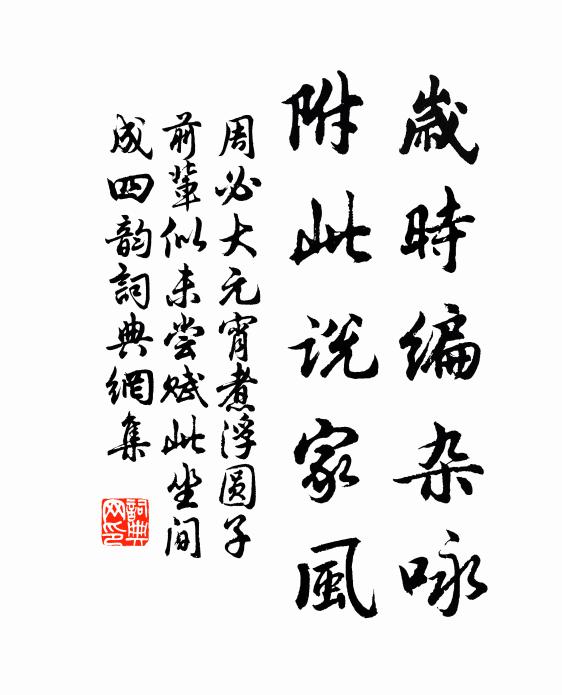 歲時編杂咏
附此説家風
周必大元宵煮浮圆子
前輩似未尝赋此坐间
成四韵詞典網集
詞典网印